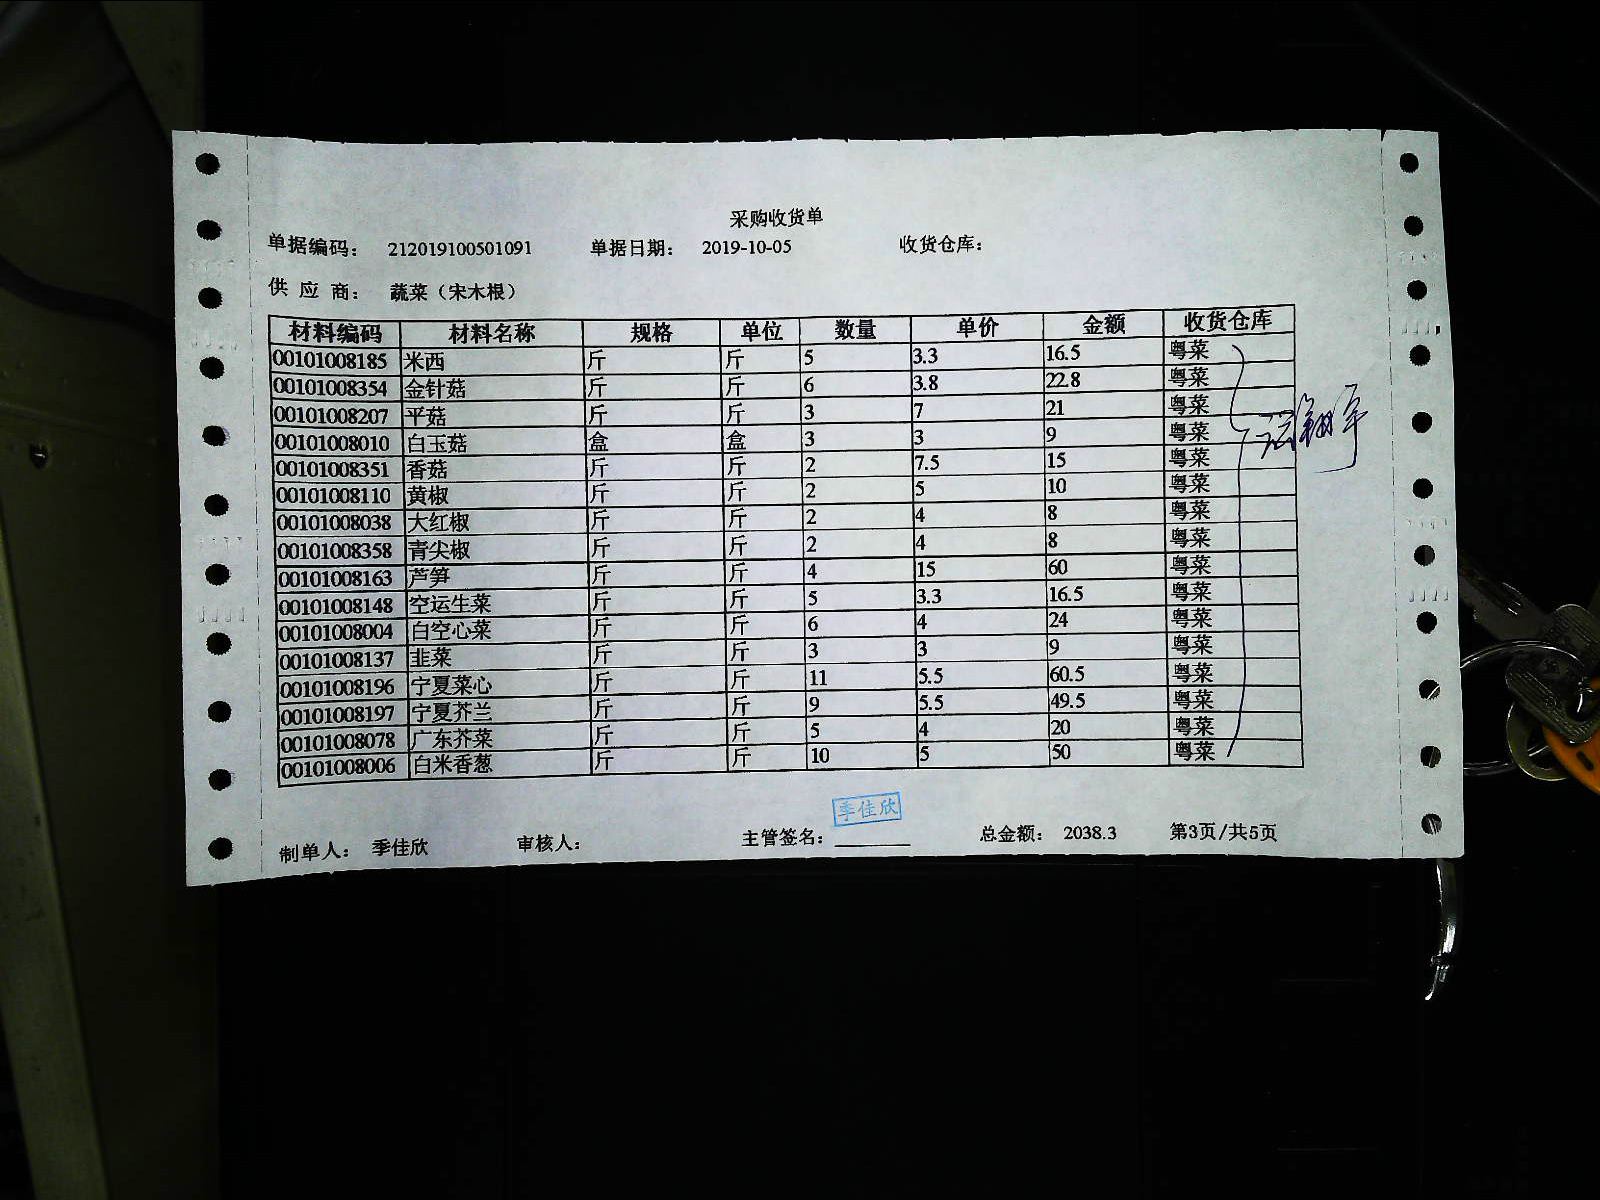 采购收货单
单据编码： 212019100501091 单据日期： 2019-10-05 收货仓库：
供 应 商： 蔬菜（宋木根）
材料编码 材料名称 规格 单位 数量 单价 金额 收货仓库
00101008185 米西 斤 斤 5 3.3 16.5 粤菜
00101008354 金针菇 斤 斤 6 3.8 22.8 粤菜
00101008207 平菇 斤 斤 3 7 21 粤菜
00101008010 白玉菇 盒 盒 3 3 9 粤菜
00101008351 香菇 斤 斤 2 7.5 15 粤菜
00101008110 黄椒 斤 斤 2 5 10 粤菜
00101008038 大红椒 斤 斤 2 4 8 粤菜
00101008358 青尖椒 斤 斤 2 4 8 粤菜
00101008163 芦笋 斤 斤 4 15 60 粤菜
00101008148 空运生菜 斤 斤 5 3.3 16.5 粤菜
00101008004 白空心菜 斤 斤 6 4 24 粤菜
00101008137 韭菜 斤 斤 3 3 9 粤菜
00101008196 宁夏菜心 斤 斤 11 5.5 60.5 粤菜
00101008197 宁夏芥兰 斤 斤 9 5.5 49.5 粤菜
00101008078 广东芥菜 斤 斤 5 4 20 粤菜
00101008006 白米香葱 斤 斤 10 5 50 粤菜
季佳欣
制单人： 季佳欣 审核人： 主管签名： 总金额： 2038.3 第3页/共5页